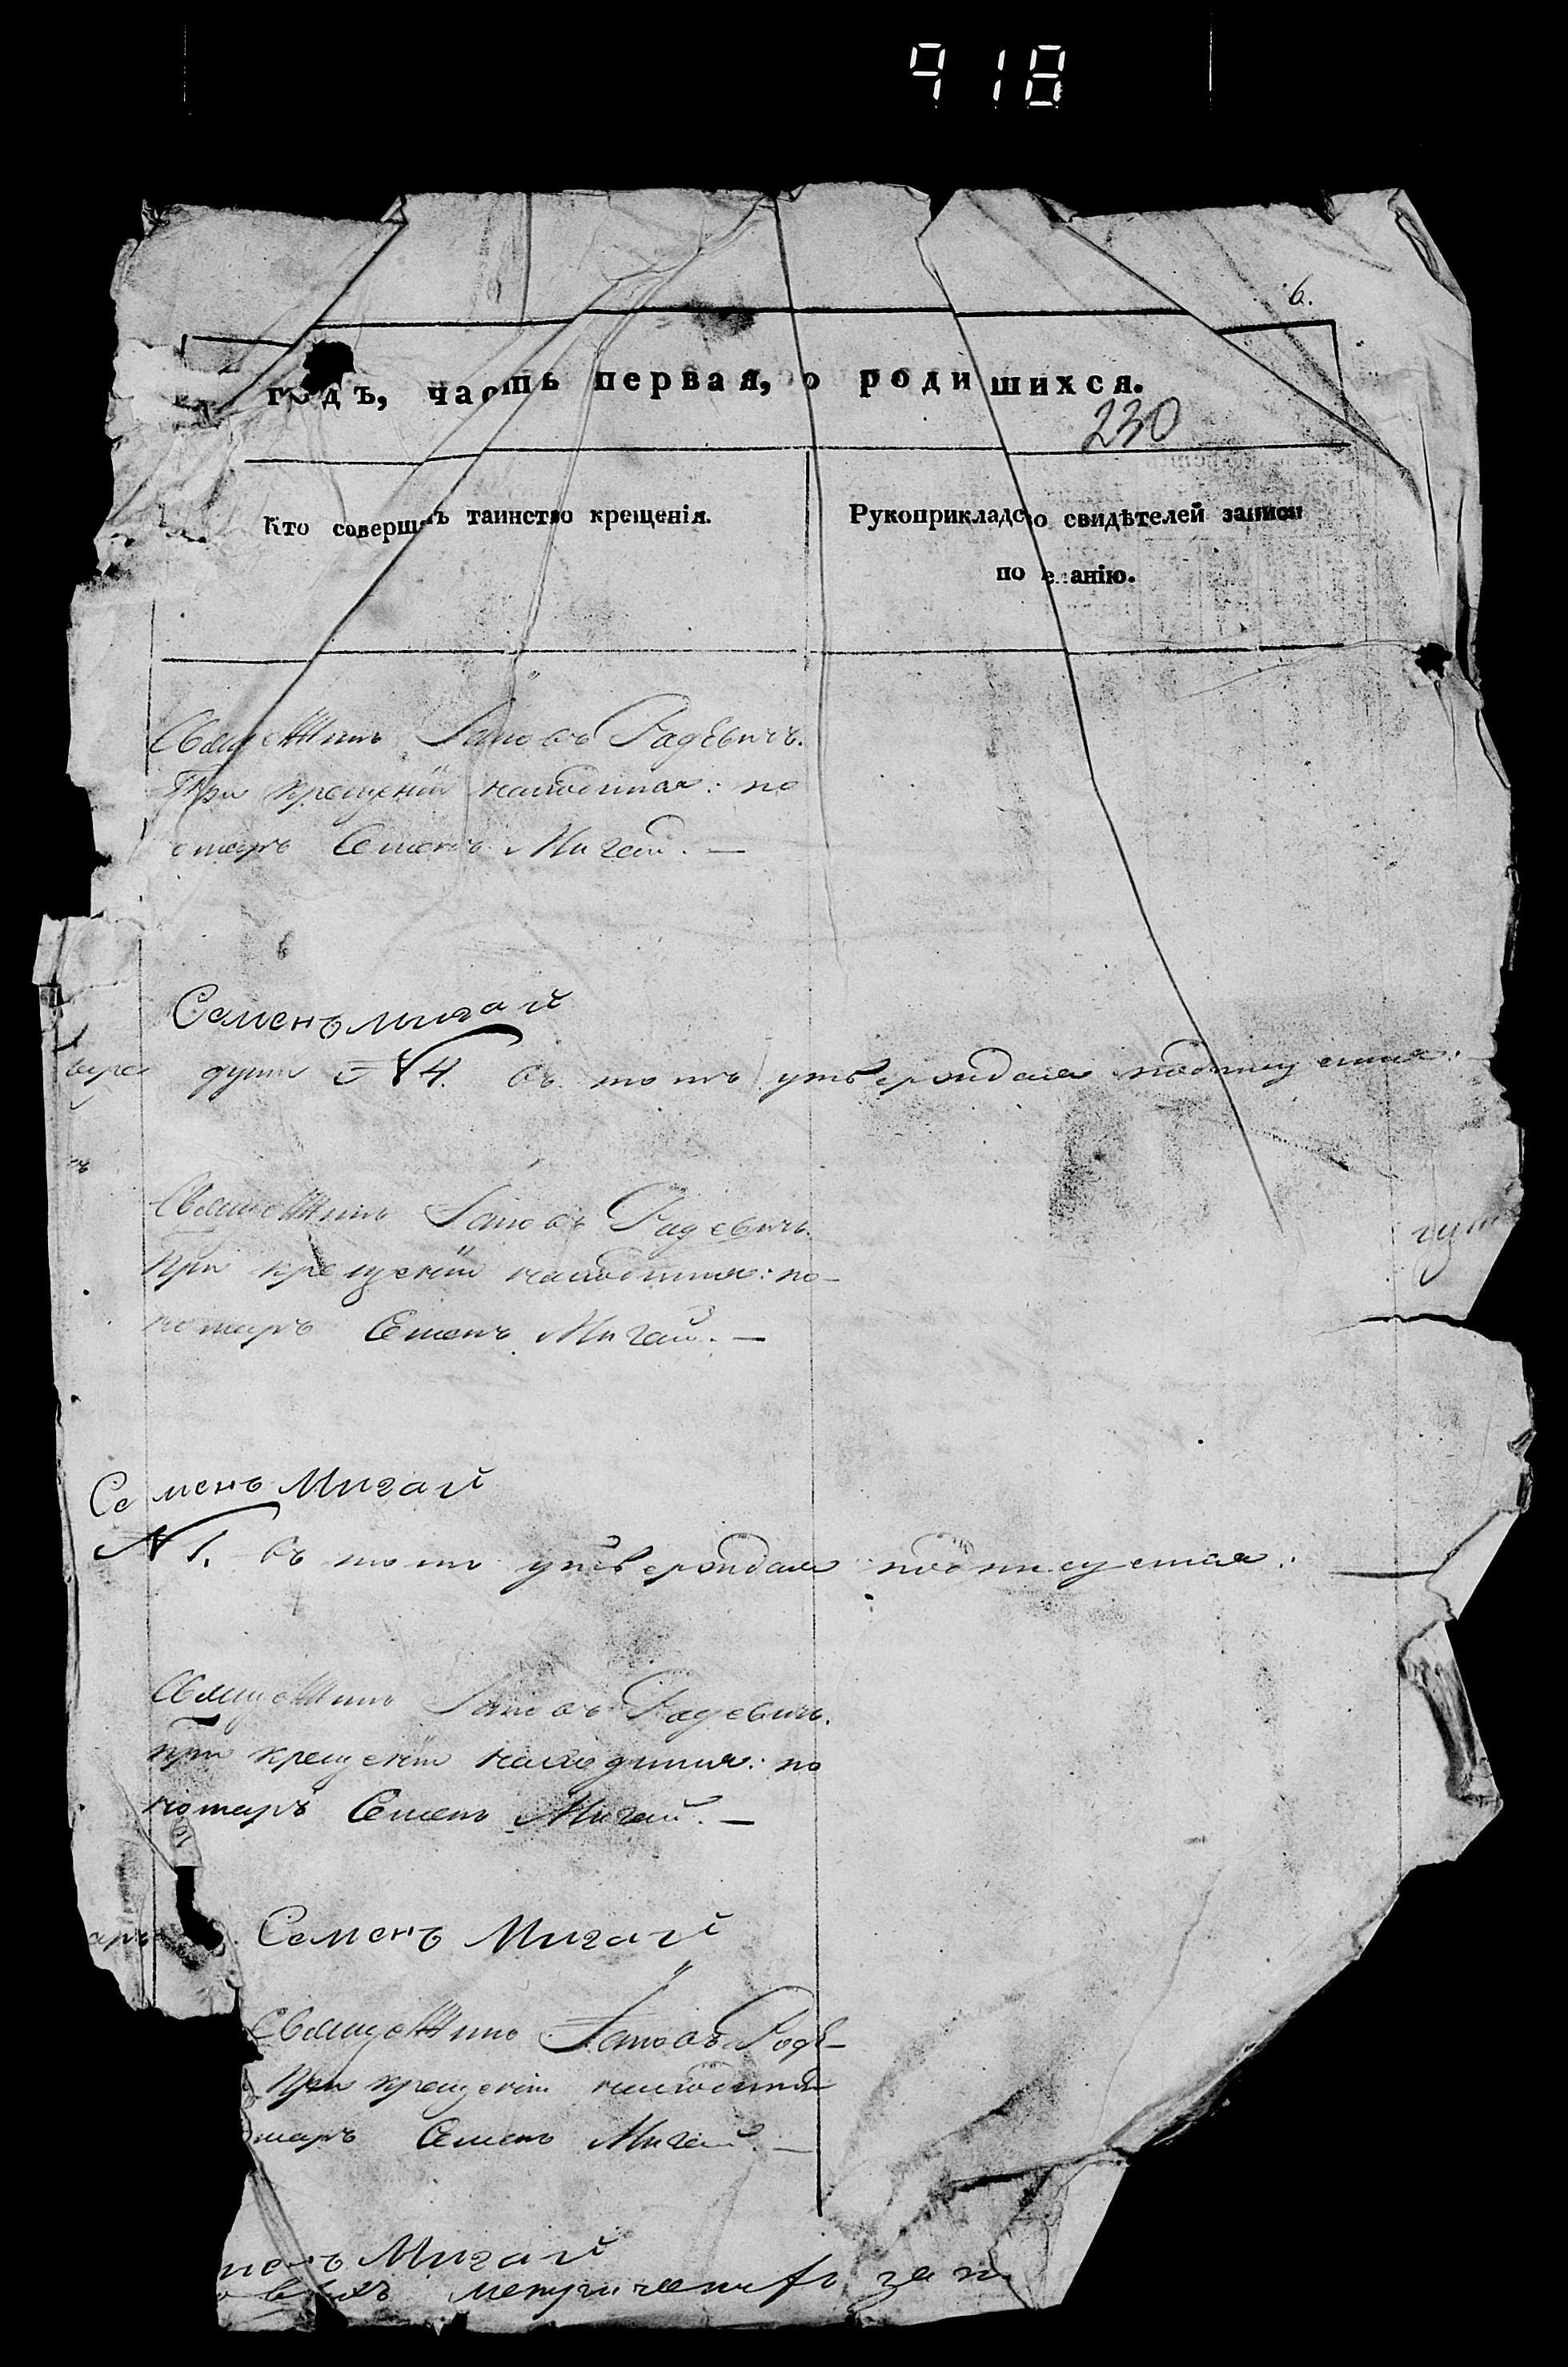 918
6.
годъ, часть первая, о родившихся.
230
Кто совершалъ таинство крещенія.
Рукоприкладство свидѣтелей записи
по желанію.
Іаковъ Радевичъ.
При крещеніи находился: по
Семенъ Мигай. —
Семенъ Мигай
души № 4. въ томъ утверждаю подписуемся:
Іаковъ Радевичъ.
При крещеніи находился: по-
номарь Семенъ Мигай. —
Семенъ Мигай
№ 1. въ томъ утверждаю подписуемся:
Іаковъ Радевичъ.
При крещеніи находился: по
номарь Семенъ Мигай. —
арь Семенъ Мигай
Іаковъ Раде-
При крещеніи находился
марь Семенъ Мигай. —
менъ Мигай